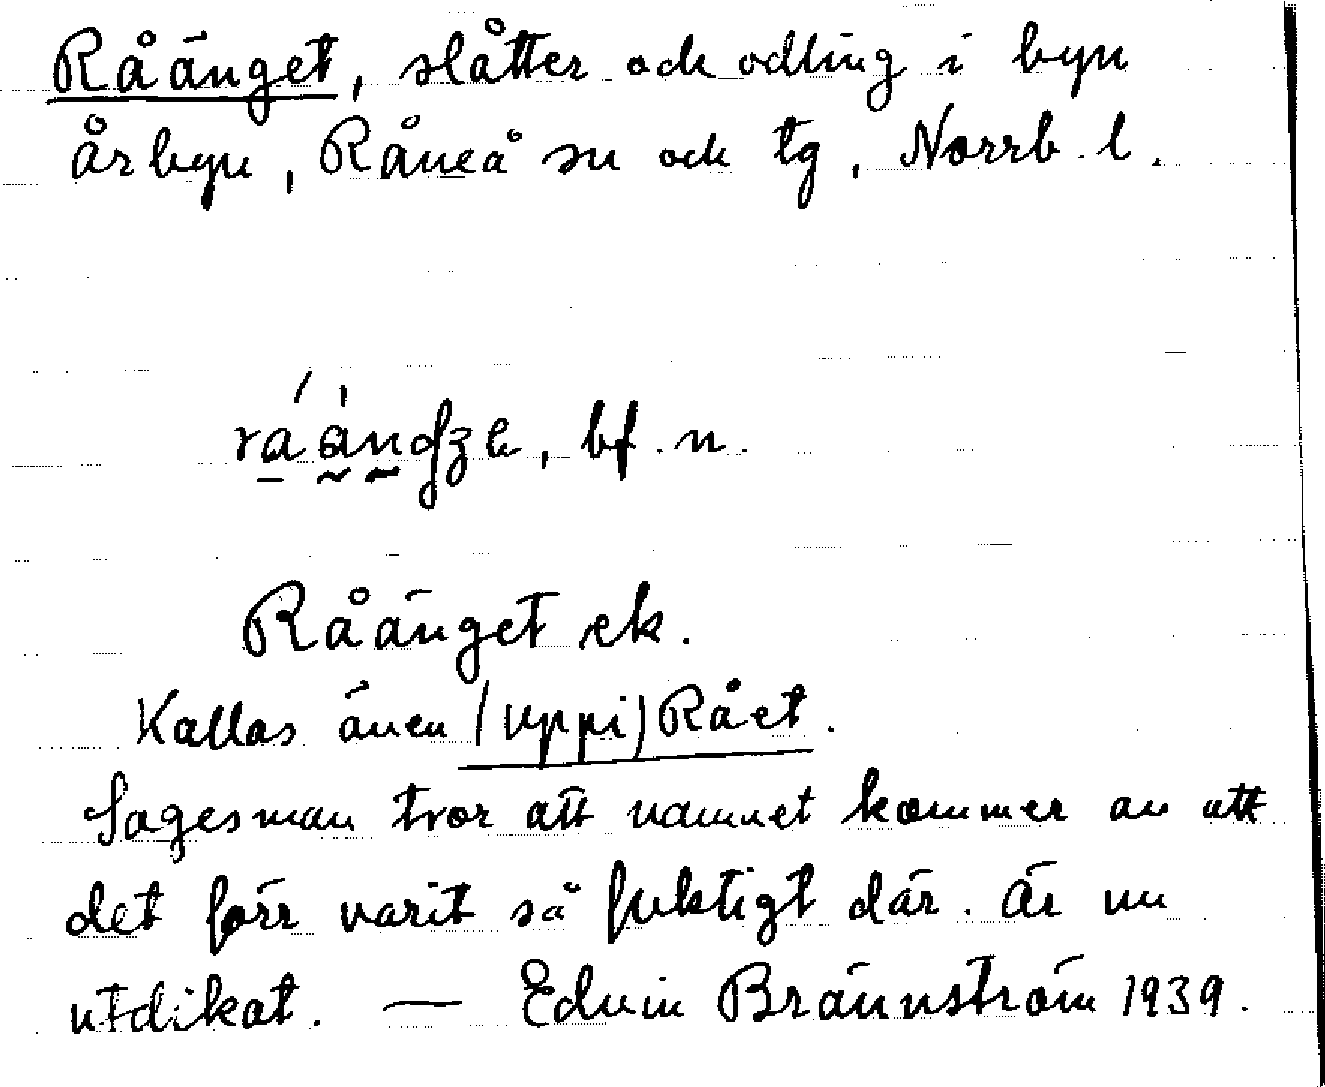 Råänget, slåtter och odling i byn
Årbyn, Råneå sn och tg, Norrb. l.
bf. n.
Råänget ek.
Kallas även (Uppi) Rået.
Sagesman tror att namnet kommer av att
det förr varit så fuktigt där. Är nu
utdikat. — Edvin Brännström 1939.